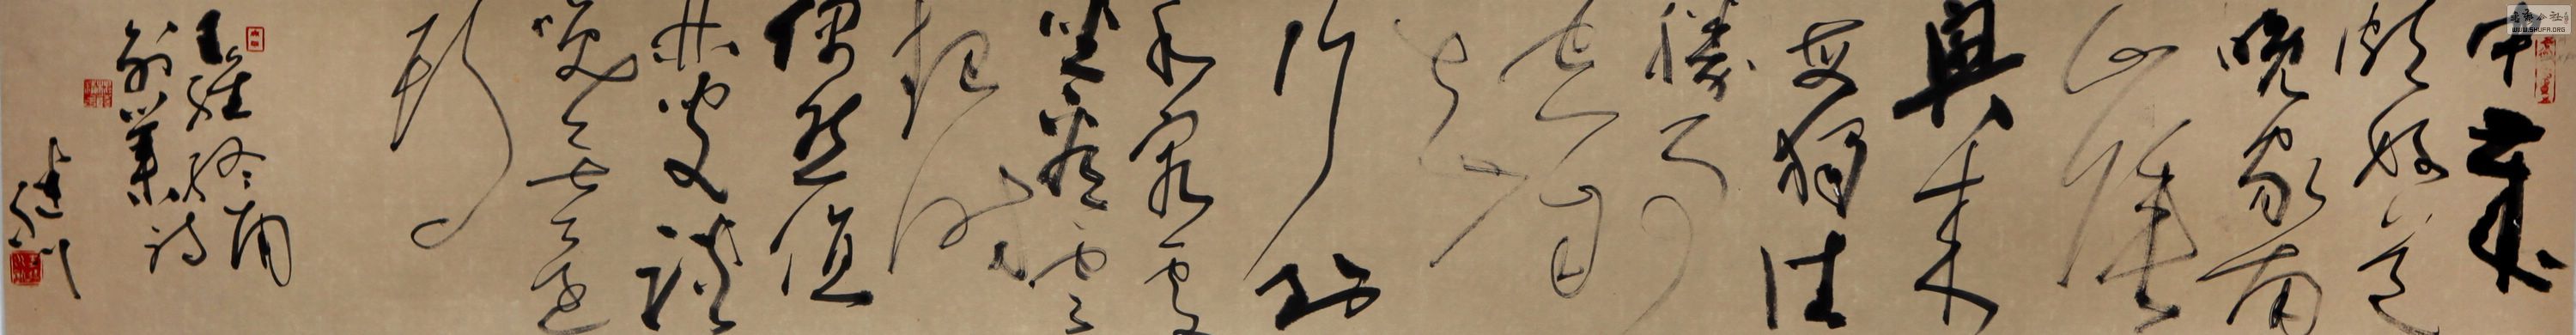 中歲
頗好道
晚家南
山陲
興來
每獨往
勝事
空自
知
行到
水窮處
坐看雲
起時
偶然值
林叟談
笑無還
期
王維終南
別業詩
WWW.SHUFA.ORG